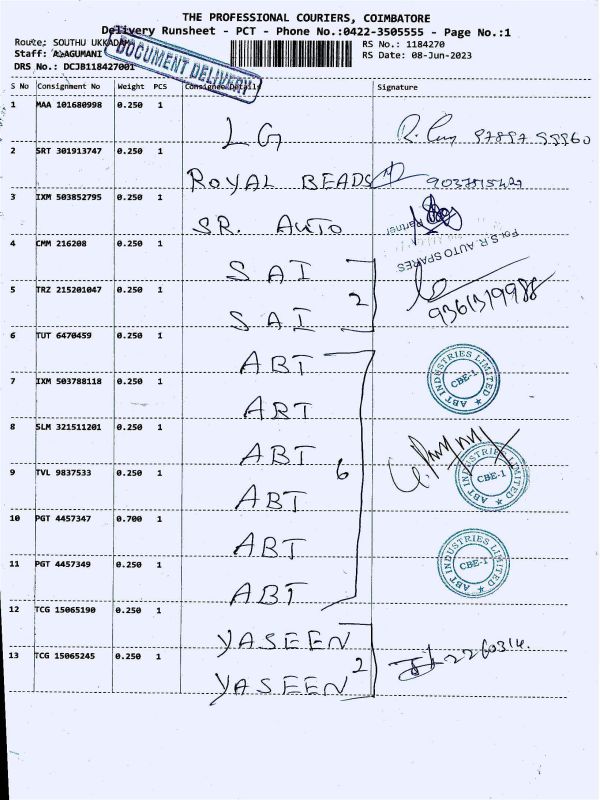 THE PROFESSIONAL COURIERS, COIMBATORE
Delivery Runsheet - PCT - Phone No.:0422-3505555 - Page No.:1
Route: SOUTHU UKKADAM
RS No.: 1184270
Staff: ALAGUMANI
RS Date: 08-Jun-2023
DRS No.: DCJB118427001
DOCUMENT DELIVERY
S No Consignment No Weight PCS Consignee Details Signature
1 MAA 101680998 0.250 1 LG
2 SRT 301913747 0.250 1 ROYAL BEADS
3 IXM 503852795 0.250 1 SR. AUTO
Partner
For S.R. AUTO SPARES
4 CMM 216208 0.250 1 SAI
2
9361319988
5 TRZ 215201047 0.250 1 SAI
6 TUT 6470459 0.250 1 ABT
ABT INDUSTRIES LIMITED
CBE-1
7 IXM 503788118 0.250 1 ABT
8 SLM 321511201 0.250 1 ABT
6
ABT INDUSTRIES LIMITED
CBE-1
9 TVL 9837533 0.250 1 ABT
10 PGT 4457347 0.700 1 ABT
ABT INDUSTRIES LIMITED
CBE-1
11 PGT 4457349 0.250 1 ABT
12 TCG 15065190 0.250 1 YASEEN
2
13 TCG 15065245 0.250 1 YASEEN